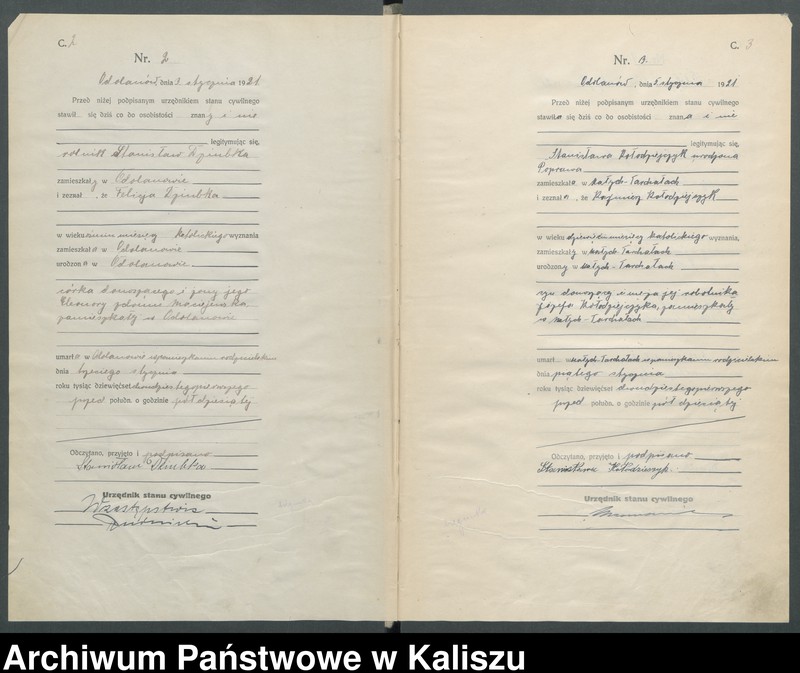 C. 2
Nr. 2
Odolanów dnia stycznia 1921
Przed niżej podpisanym urzędnikiem stanu cywilnego
stawił się dziś co do osobistości znany i nie
legitymując się,
rolnik Stanisław
zamieszkały w Odolanowie
i zeznał, że Felicja
w wieku miesięcy katolickiego wyznania
zamieszkała w Odolanowie
urodzona w Odolanowie
córka donoszącego i żony jego
Eleonory
zamieszkały w Odolanowie
umarła w Odolanowie
dnia stycznia
roku tysiąc dziewięćset dwudziestegopierwszego
przed połudn. o godzinie pół dziewiątej
Odczytano, przyjęto i podpisano
Stanisław
Urzędnik stanu cywilnego
W zastępstwie
C. 3
Nr. 3.
Odolanów, dnia stycznia 1921
Przed niżej podpisanym urzędnikiem stanu cywilnego
stawiła się dziś co do osobistości znana i nie
legitymując się,
Stanisława Kołodziejczyk urodzona
Poprawa
zamieszkała w małych-Tarchałach
i zeznała, że Kołodziejczyk
w wieku miesięcy katolickiego wyznania,
zamieszkały w małych-Tarchałach
urodzony w małych-Tarchałach
syn donoszącej i męża jej robotnika
Józefa Kołodziejczyka, zamieszkały
w małych-Tarchałach
umarł w małych Tarchałach
dnia piątego stycznia
roku tysiąc dziewięćset dwudziestegopierwszego
przed połudn. o godzinie pół dziewiątej
Odczytano, przyjęto i podpisano
Stanisława
Urzędnik stanu cywilnego
Archiwum Państwowe w Kaliszu